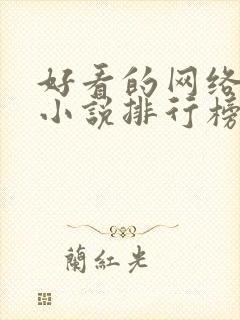 好看的网络
小说排行榜
蘭紅光